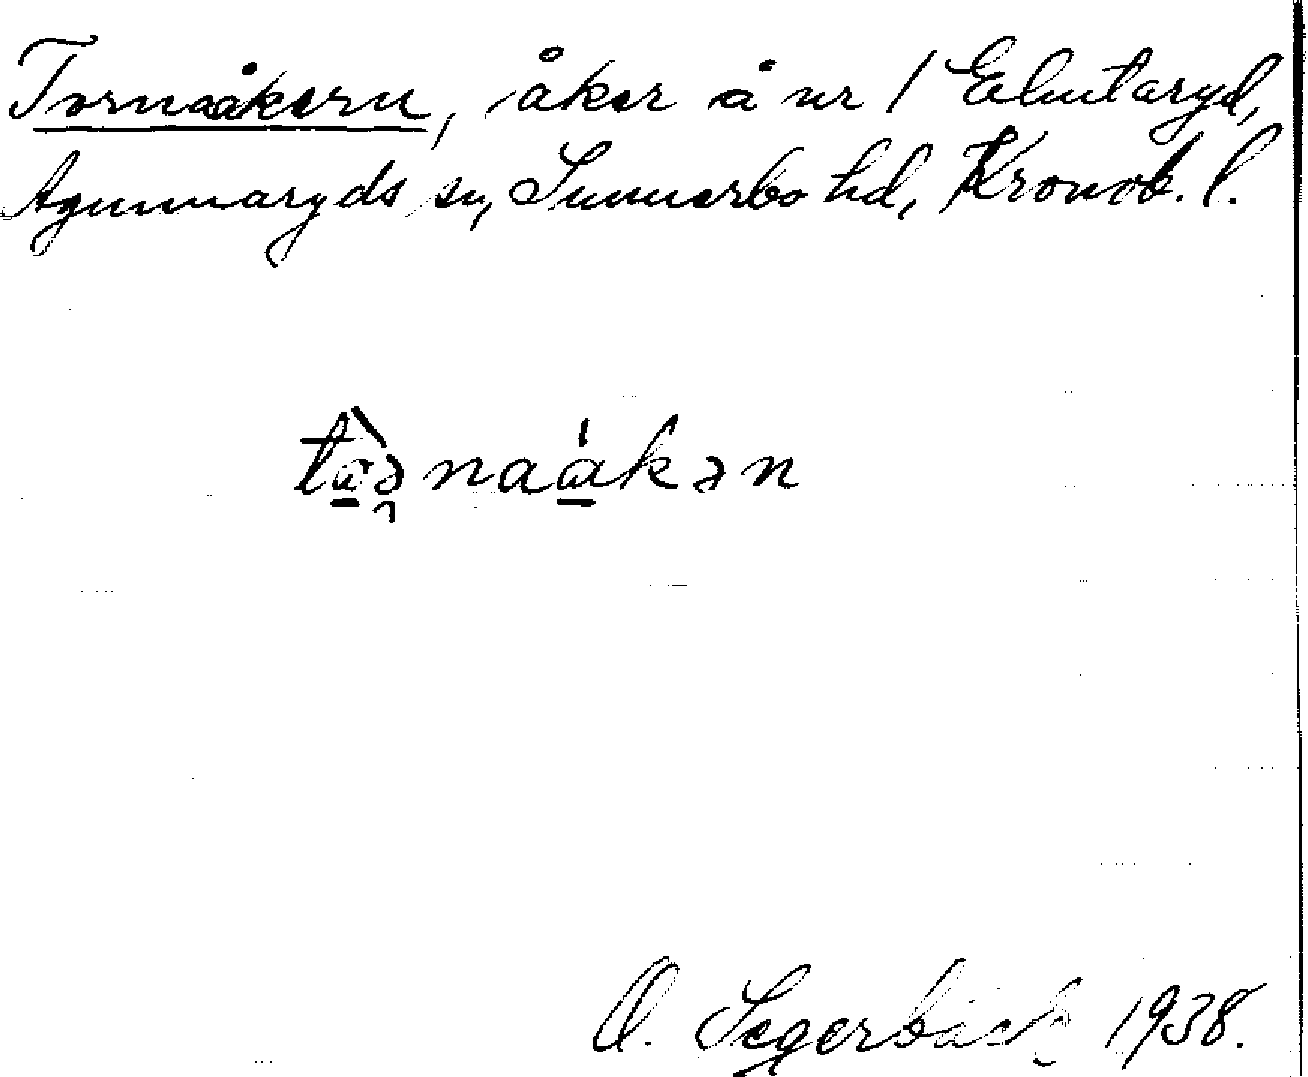 Tornaåkern, åker å nr 1 Elmtaryd,
Agunnaryds sn, Sunnerbo hd, Kronob. l.
ta̱ə̯̀naa̱̍kən
O. Segerbäck 1938.